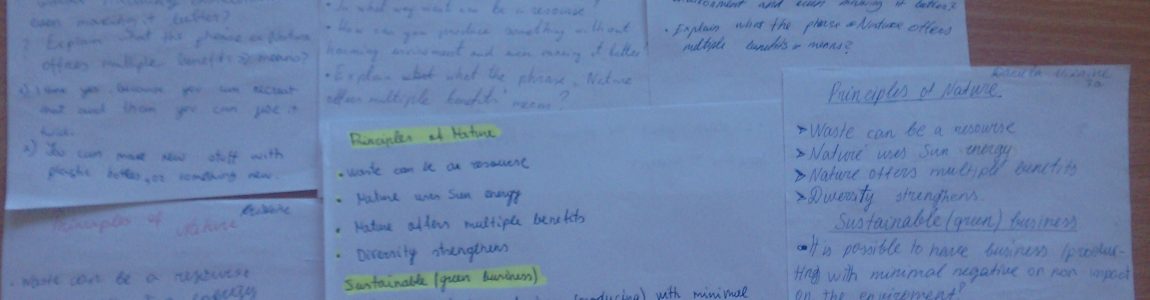 even making it better?
? Explain what the phrase « Nature
offers multiple benefits » means?
that and then you can use it
twice.
2) You can make new stuff with
plastic bottles, or something new.
• In what way waste can be a resourse?
• How can you produce something without
harming enviroment and even making it better?
• Explain what the phrase, Nature
offers multiple benefits means?
enviroment and even making it better?
• Explain what the phrase « Nature offers
multiple benefits » means?
Principles of Nature
• Waste can be a resourse
Principles of Nature
• Waste can be a resourse
• Nature uses Sun energy
• Nature offers multiple benefits
• Diversity strengthens
Sustainable (green business)
with minimal
Principles of Nature
➢ Waste can be a resourse
➢ Nature uses Sun energy
➢ Nature offers multiple benefits
➢ Diversity strengthens.
Sustainable (green) business
• It is possible to have business (produc-
ting) with minimal negative or non impact
on the enviroment?